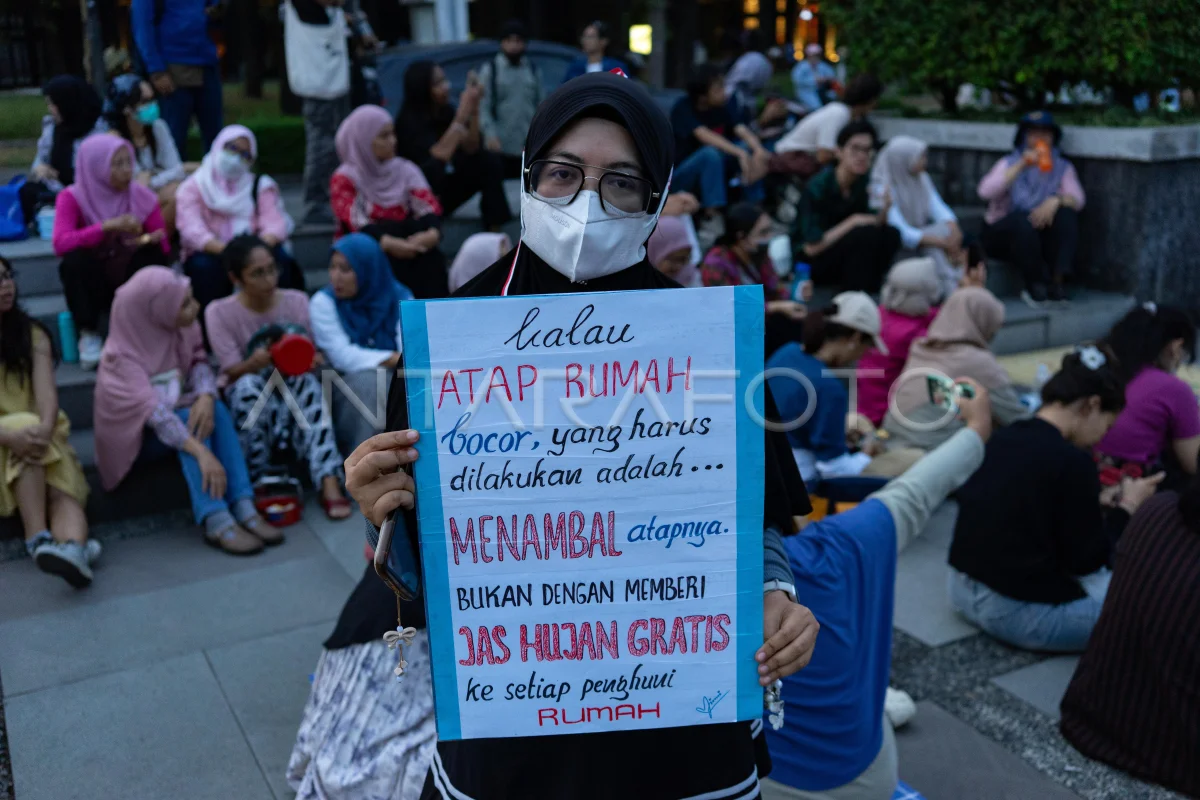 kalau
ATAP RUMAH
bocor, yang harus
dilakukan adalah...
MENAMBAL atapnya.
BUKAN DENGAN MEMBERI
JAS HUJAN GRATIS
ke setiap penghuni
RUMAH
ANTARAFOTO